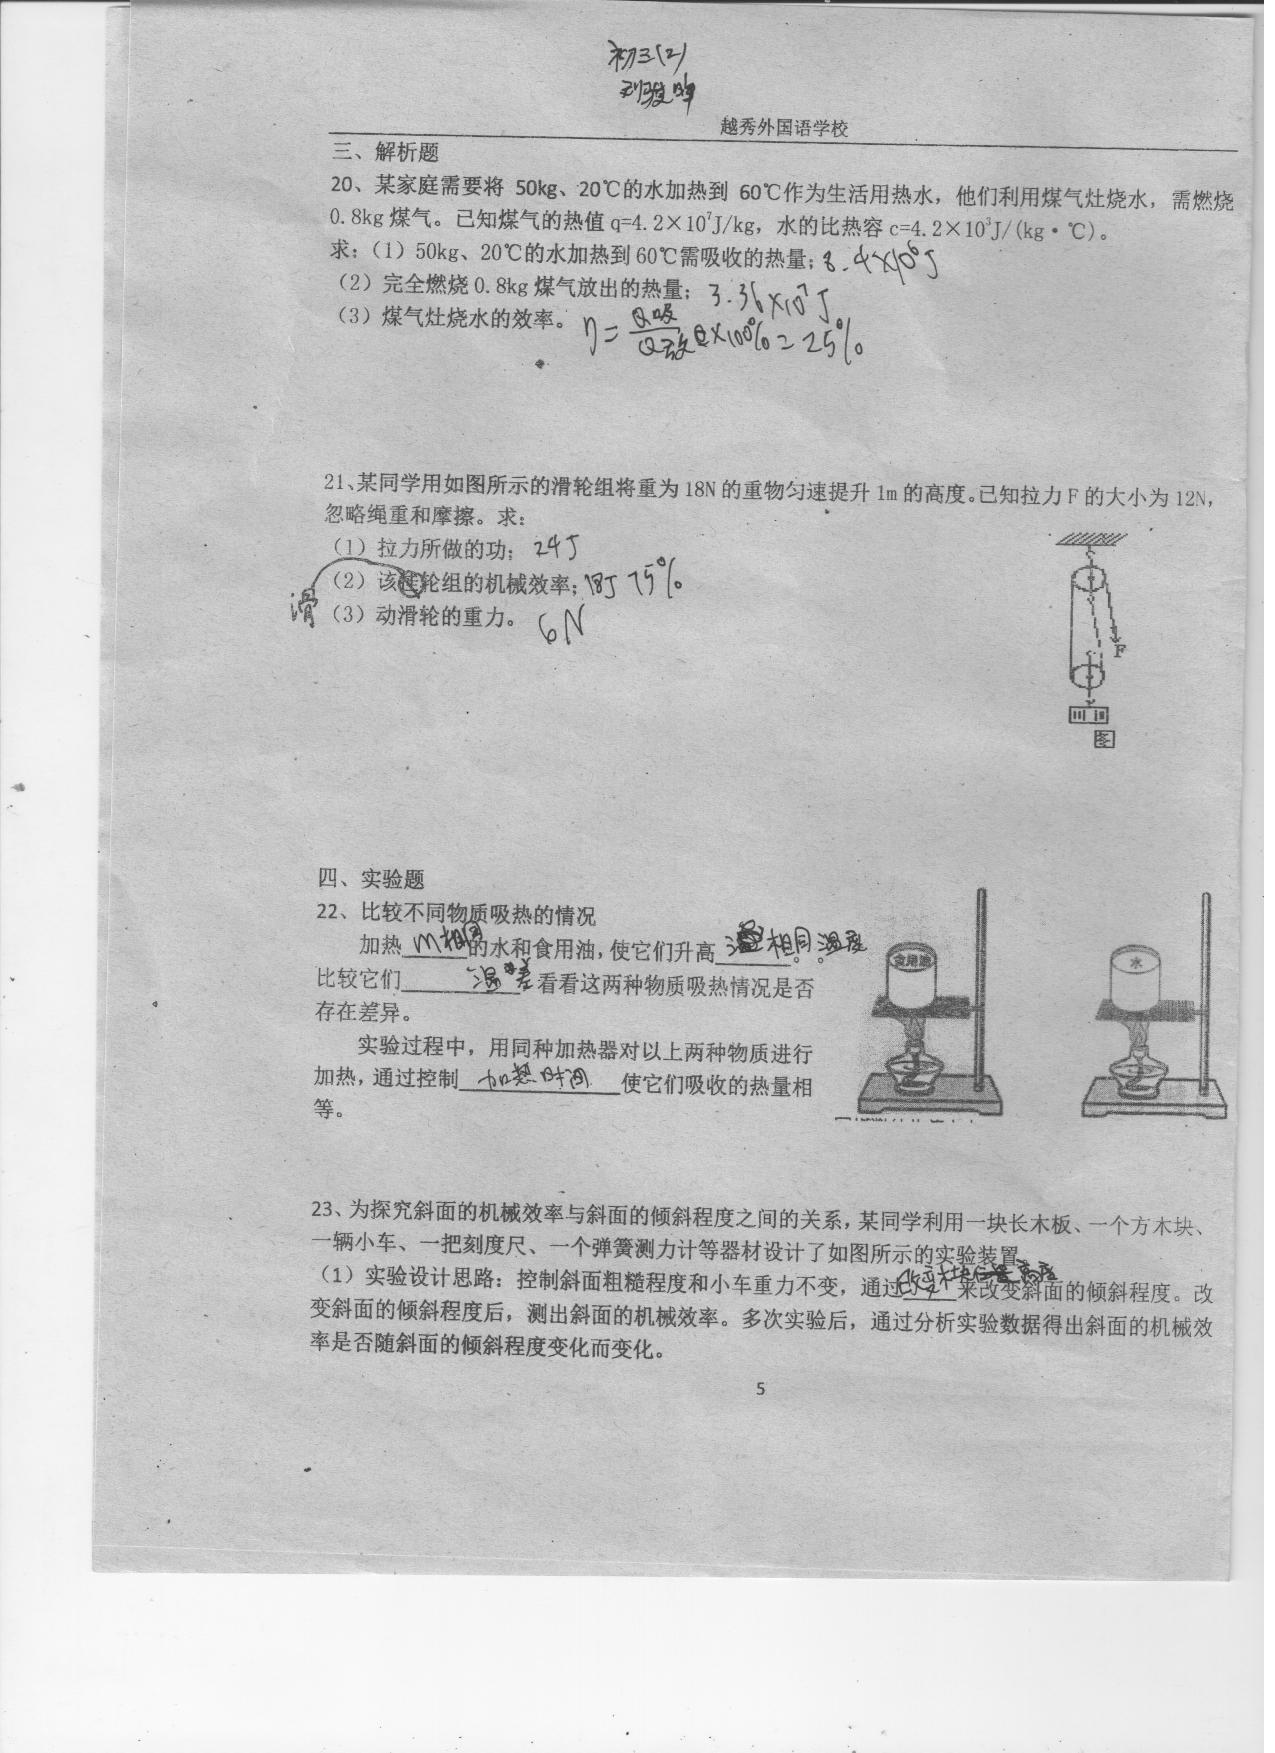 初三(2)
越秀外国语学校
三、解析题
20、某家庭需要将 50kg、20℃的水加热到 60℃作为生活用热水，他们利用煤气灶烧水，需燃烧
0.8kg 煤气。已知煤气的热值 q=4.2×10⁷J/kg，水的比热容 c=4.2×10³J/(kg·℃)。
求：（1）50kg、20℃的水加热到 60℃需吸收的热量；8.4×10⁶J
（2）完全燃烧 0.8kg 煤气放出的热量；3.36×10⁷J
（3）煤气灶烧水的效率。η=Q吸/Q放×100%=25%
21、某同学用如图所示的滑轮组将重为 18N 的重物匀速提升 1m 的高度。已知拉力 F 的大小为 12N，
忽略绳重和摩擦。求：
（1）拉力所做的功；24J
（2）该轮组的机械效率；18J 75%
滑
（3）动滑轮的重力。6N
F
图
四、实验题
22、比较不同物质吸热的情况
加热m相同的水和食用油，使它们升高相同温度。
比较它们温差，看看这两种物质吸热情况是否
存在差异。
实验过程中，用同种加热器对以上两种物质进行
加热，通过控制加热时间使它们吸收的热量相
等。
食用油
水
23、为探究斜面的机械效率与斜面的倾斜程度之间的关系，某同学利用一块长木板、一个方木块、
一辆小车、一把刻度尺、一个弹簧测力计等器材设计了如图所示的实验装置
（1）实验设计思路：控制斜面粗糙程度和小车重力不变，通过改变木块高度来改变斜面的倾斜程度。改
变斜面的倾斜程度后，测出斜面的机械效率。多次实验后，通过分析实验数据得出斜面的机械效
率是否随斜面的倾斜程度变化而变化。
5